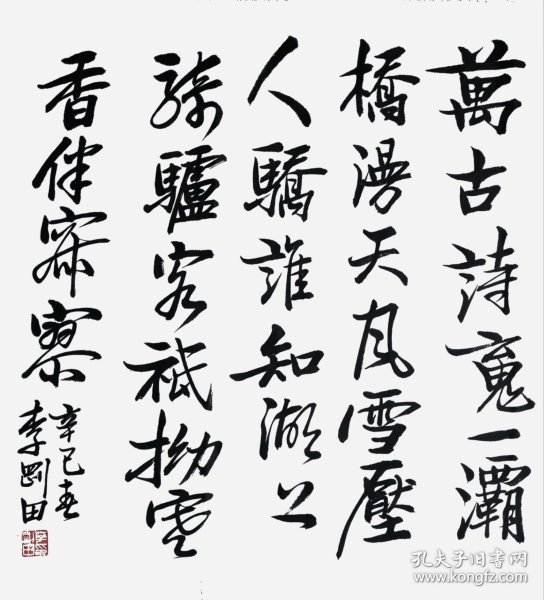 萬古詩魂一灞
橋漫天風雪壓
人驕誰知湖上
騎驢客祇拗寒
香伴寂寥
辛巳春
李剛田
孔夫子旧书网
www.kongfz.com